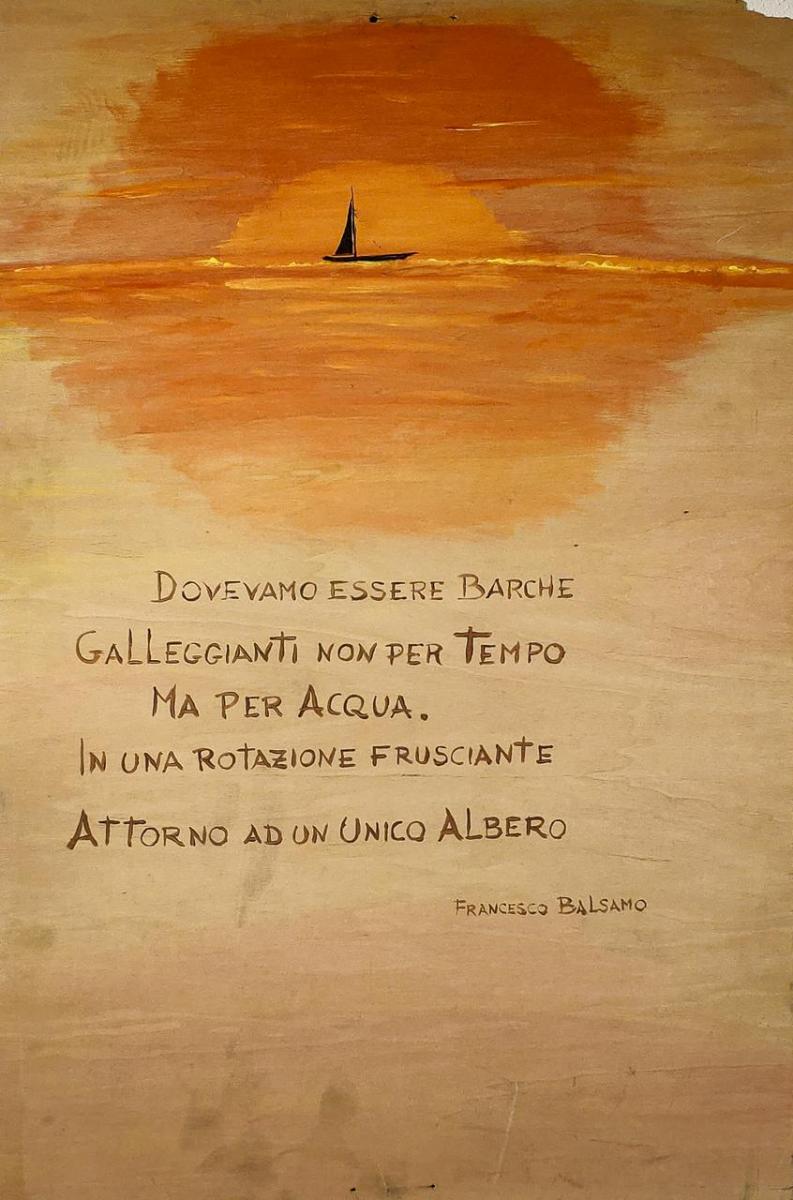 DOVEVAMO ESSERE BARCHE
GALLEGGIANTI NON PER TEMPO
MA PER ACQUA.
IN UNA ROTAZIONE FRUSCIANTE
ATTORNO AD UN UNICO ALBERO
FRANCESCO BALSAMO